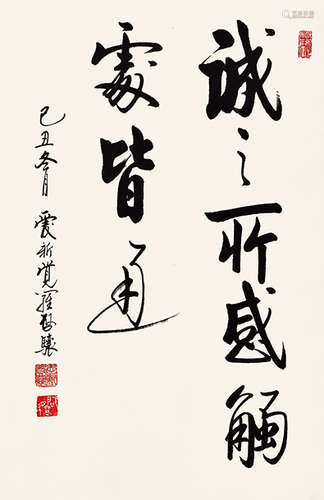 誠之所感觸
處皆通
己丑冬月 愛新覺羅啟驤